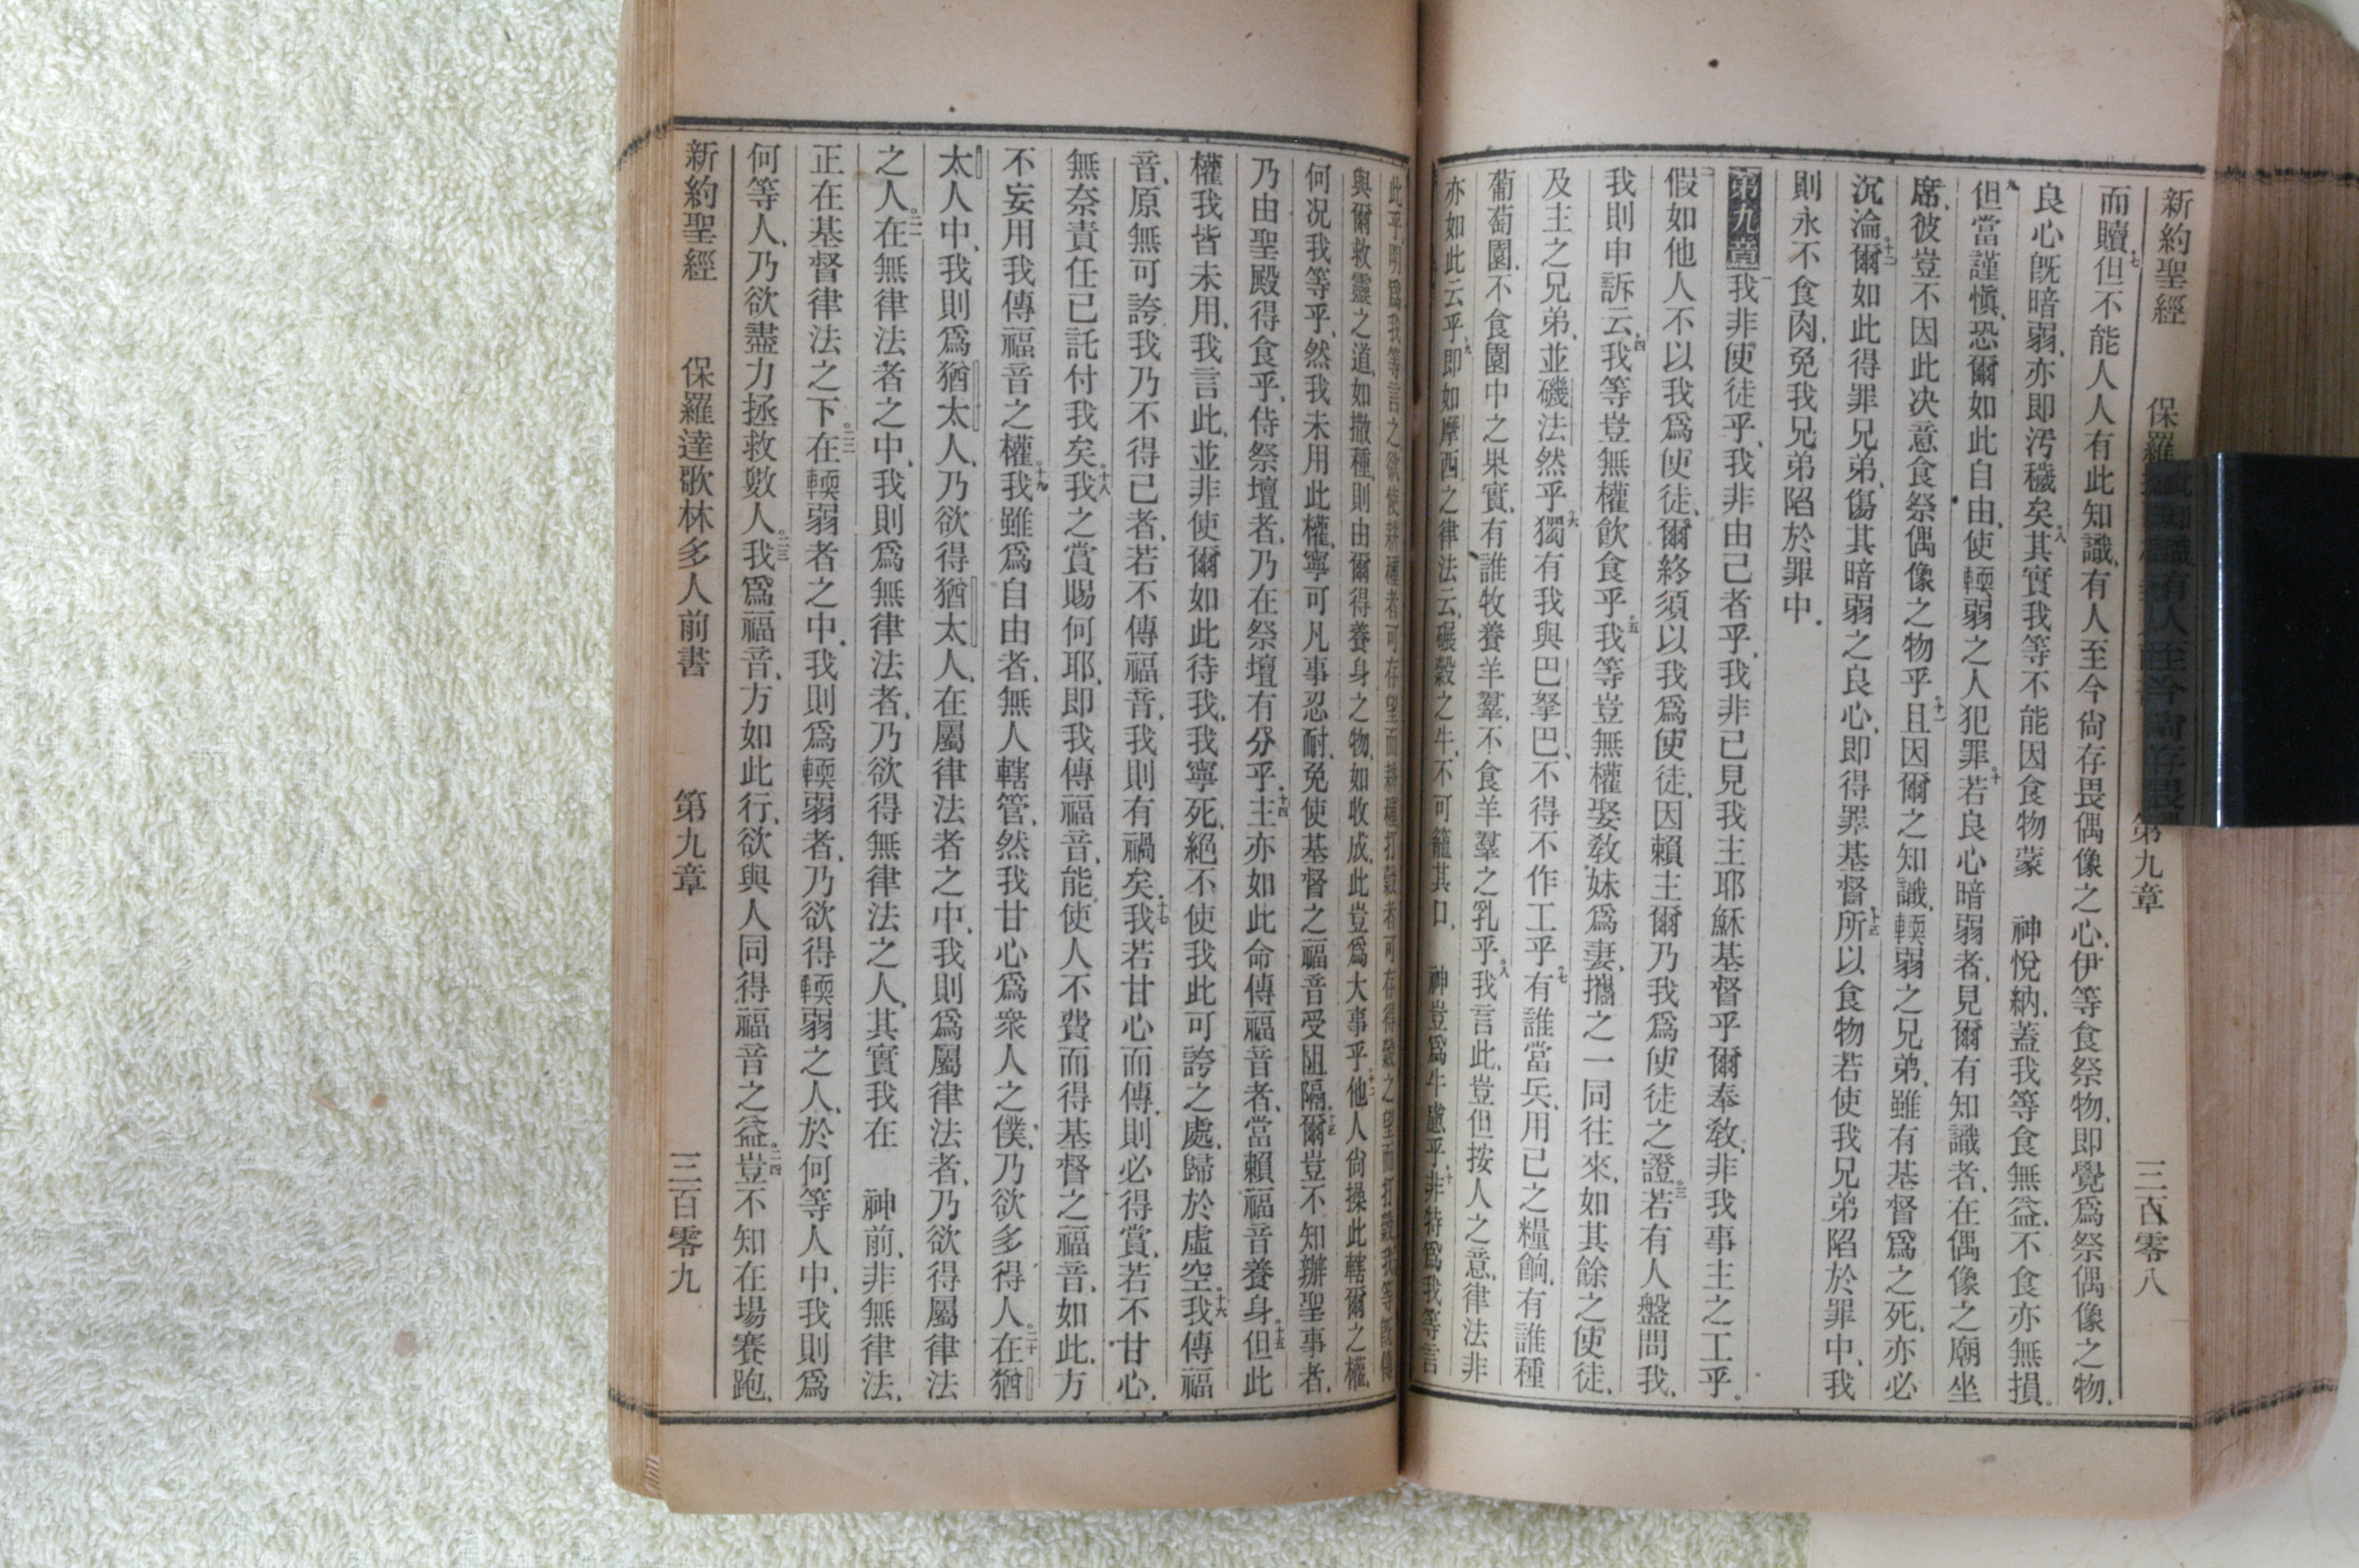 新約聖經 保羅 第九章 三百零八
而贖七但不能人人有此知識、有人至今尙存畏偶像之心、伊等食祭物、卽覺爲祭偶像之物、
良心旣暗弱、亦卽汚穢矣、八其實我等不能因食物蒙 神悅納、蓋我等食無益、不食亦無損。
九但當謹愼、恐爾如此自由、使輭弱之人犯罪、十若良心暗弱者、見爾有知識者、在偶像之廟坐
席、彼豈不因此决意食祭偶像之物乎、十一且因爾之知識、輭弱之兄弟、雖有基督爲之死、亦必
沉淪、十二爾如此得罪兄弟、傷其暗弱之良心、卽得罪基督、十三所以食物若使我兄弟陷於罪中、我
則永不食肉、免我兄弟陷於罪中.
第九章 一我非使徒乎、我非由己者乎、我非已見我主耶穌基督乎、爾奉敎、非我事主之工乎。
二假如他人不以我爲使徒、爾終須以我爲使徒、因賴主爾乃我爲使徒之證、三若有人盤問我、
我則申訴云、四我等豈無權飮食乎、五我等豈無權娶敎妹爲妻、攜之一同往來、如其餘之使徒、
及主之兄弟、並磯法然乎、六獨有我與巴拏巴、不得不作工乎、七有誰當兵、用己之糧餉、有誰種
葡萄園、不食園中之果實、有誰牧養羊羣、不食羊羣之乳乎、八我言此、豈但按人之意、律法非
亦如此云乎、九卽如摩西之律法云、碾穀之牛、不可籠其口、 神豈爲牛慮乎、十非特爲我等言
此乎、明爲我等言之、欲使耕種者可存望而耕種、打穀者可存得穀之望而打穀、我等旣傳
與爾救靈之道、如撒種、則由爾得養身之物、如收成、此豈爲大事乎、十二他人尙操此轄爾之權、
何况我等乎、然我未用此權、寧可凡事忍耐、免使基督之福音受阻隔、十三爾豈不知辦聖事者、
乃由聖殿得食乎、侍祭壇者、乃在祭壇有分乎、十四主亦如此命傳福音者、當賴福音養身、十五但此
權我皆未用、我言此、並非使爾如此待我、我寧死、絕不使我此可誇之處、歸於虛空、十六我傳福
音、原無可誇、我乃不得已者、若不傳福音、我則有禍矣、十七我若甘心而傳、則必得賞、若不甘心、
無奈責任已託付我矣、十八我之賞賜何耶、卽我傳福音、能使人不費而得基督之福音、如此、方
不妄用我傳福音之權、十九我雖爲自由者、無人轄管、然我甘心爲衆人之僕、乃欲多得人、二十在猶
太人中、我則爲猶太人、乃欲得猶太人、在屬律法者之中、我則爲屬律法者、乃欲得屬律法
之人、二一在無律法者之中、我則爲無律法者、乃欲得無律法之人、其實我在 神前、非無律法、
正在基督律法之下、二二在輭弱者之中、我則爲輭弱者、乃欲得輭弱之人、於何等人中、我則爲
何等人、乃欲盡力拯救數人、二三我爲福音、方如此行、欲與人同得福音之益、二四豈不知在場賽跑、
新約聖經 保羅達歌林多人前書 第九章 三百零九